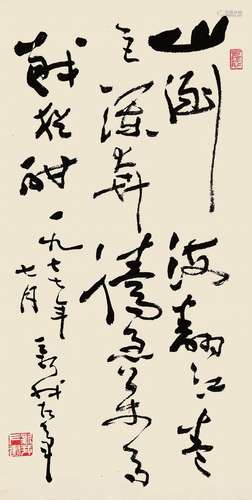 山倒海翻江卷
巨澜奔腾急万马
战犹酣
一九七七年
七月
新我左笔